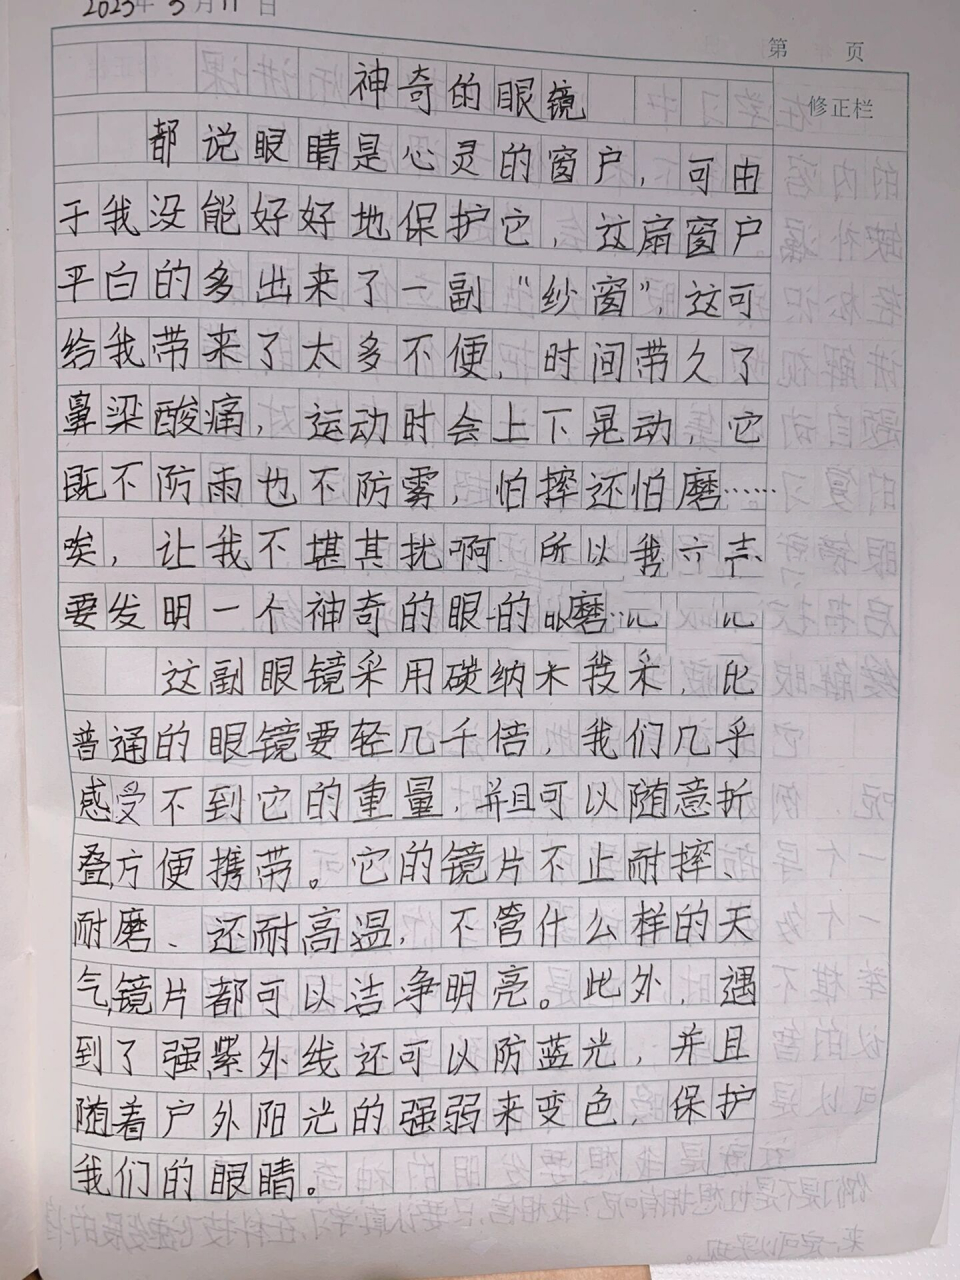 2023年5月11日
第 页
修正栏
神奇的眼镜
都说眼睛是心灵的窗户,可由
于我没能好好地保护它,这扇窗户
平白的多出来了一副“纱窗”,这可
给我带来了太多不便,时间带久了
鼻梁酸痛,运动时会上下晃动,它
既不防雨也不防雾,怕摔还怕磨……
唉,让我不堪其扰啊 所以我
要发明一个神奇的眼的 磨
这副眼镜采用碳纳木技术,比
普通的眼镜要轻几千倍,我们几乎
感受不到它的重量,并且可以随意折
叠,方便携带。它的镜片不止耐摔、
耐磨、还耐高温,不管什么样的天
气,镜片都可以洁净明亮。此外,遇
到了强紫外线还可以防蓝光,并且
随着户外阳光的强弱来变色,保护
我们的眼睛。